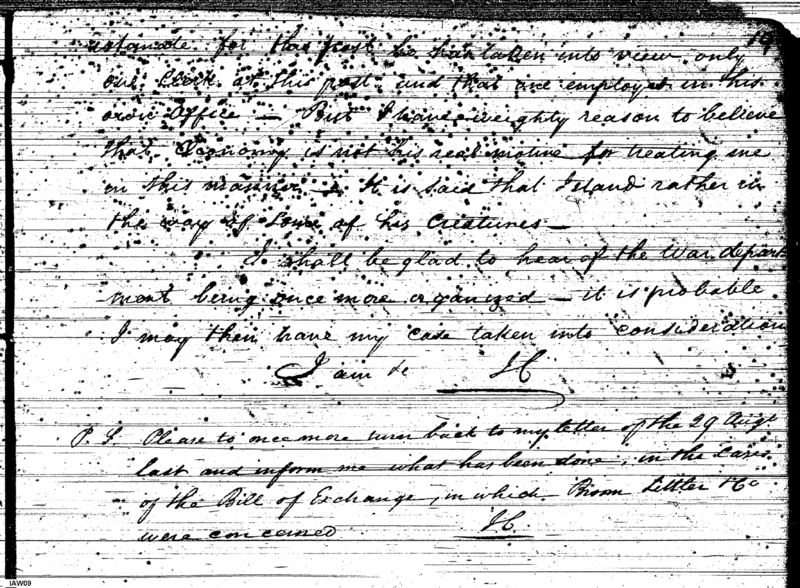 19
estimate for this post he has taken into view only
one Clerk at this post and that one employed in his
own Office — But I have weighty reason to believe
that Economy is not his real motive for treating me
in this manner — It is said that I stand rather in
the way of some of his Creatures —
I shall be glad to hear of the War depart
ment being once more organized — it is probable
I may then have my case taken into consideration
I am &c JC S
P. S. Please to once more turn back to my letter of the 29 Augt
last and inform me what has been done, in the Cases
of the Bill of Exchange, in which Littler &c
were concerned JC.
IAW09